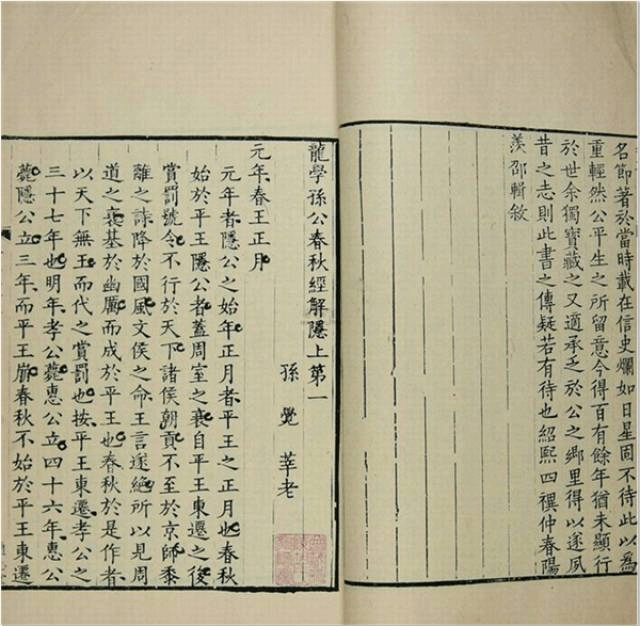 名節著於當時載在信史爛如日星固不待此以爲
重輕然公平生之所留意今得百有餘年猶未顯行
於世余獨寶藏之又適承乏於公之鄉里得以遂夙
昔之志則此書之傳疑若有待也紹熙四禩仲春陽
羨邵輯敘
龍學孫公春秋經解隱上第一
孫覺莘老
元年春王正月
元年者隱公之始年正月者平王之正月也春秋
始於平王隱公者蓋周室之衰自平王東遷之後
賞罰號令不行於天下諸侯朝貢不至於京師黍
離之詩降於國風文侯之命王言遂絶所以見周
道之衰基於幽厲而成於平王也春秋於是作者
以天下無王而代之賞罰也按平王東遷孝公之
三十七年也明年孝公薨惠公立四十六年惠公
薨隱公立三年而平王崩春秋不始於平王東遷